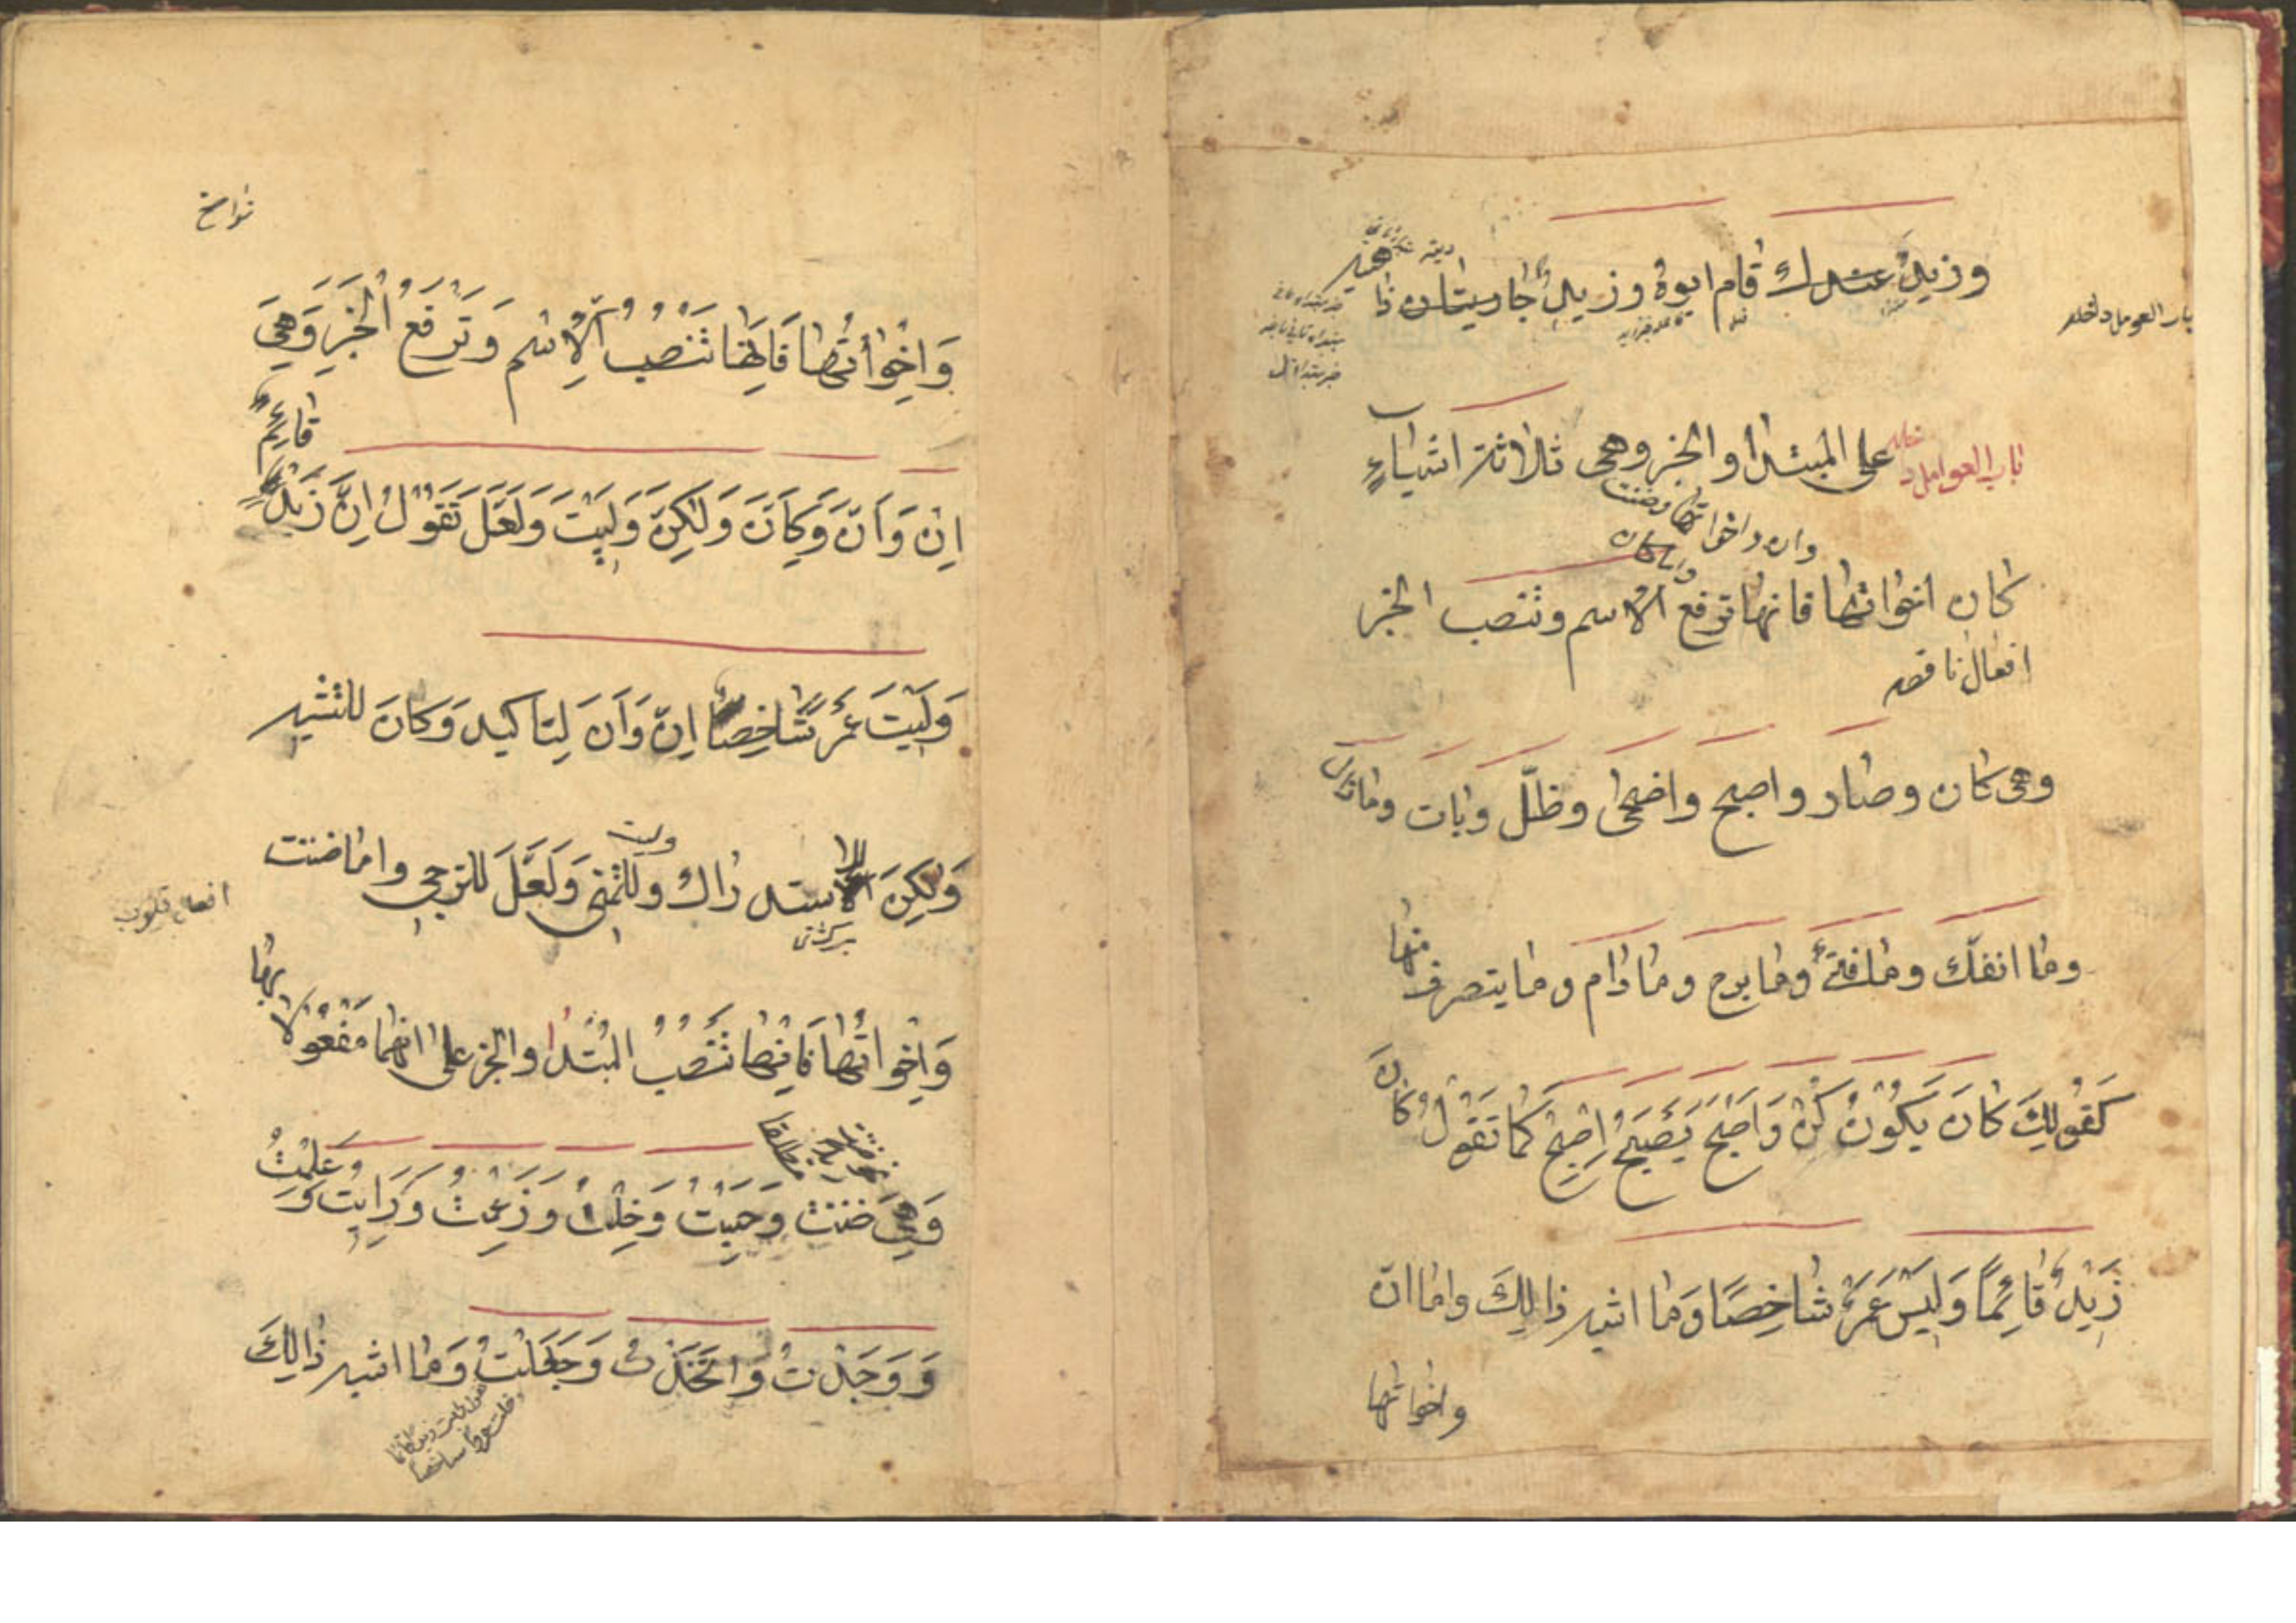 وزيد عندك قام ابوه وزيد جاريتان ذا هبه
باب العوامل داخله
باب العوامل داخله على المبتدا والخبر وهى ثلاثة اشياءٍ
وان واخواتها وضننت
كان اخواتها فانها ترفع الاسم وتنصب الخبر
افعال ناقصه
وهى كان وصار واصبح واضحى وظلّ وبات ومازال
وما انفك ومافتئ ومابرح ومادام ومايتصرف منها
كَقَولِكَ كانَ يَكُونُ كُنْ وَاَصْبَحَ يُصْبِحُ اِصْبِحْ كما تَقُولُ كانَ
زَيْدٌ قائِمًا وَلَيْسَ عَمْرٌ شاخِصًا وَما اشبه ذالِكَ واما انّ
واخواتها
نواسخ
وَاخَواتُها فَاِنَّها تَنْصِبُ الْاِسْم وَتَرْفَعُ الْخَبَرَ وَهِىَ
اِنَّ وَاَنَّ وَكَاَنَّ وَلٰكِنَّ وَلَيْتَ وَلَعَلَّ تَقُولُ اِنَّ زَيْدًا قائِمٌ
وَلَيْتَ عَمْرً شَاخِصٌ اِنَّ وَاَنَّ لِتاكيد وَكَانَ للتشبيه
وَلٰكِنَّ للاستدراك وليت وللتمنى وَلَعَلَّ للترجى واماضننت
افعال قلوب
وَاَخِواتُها فَاِنَّها تَنْصِبُ المُبْتَدا والخبر على انهما مَفْعُولا بها
وَهِىَ ضننت وَحَسِبْتُ وَخِلْتُ وَزَعَمْتُ وَرَاَيْتُ وَعَلِمْتُ
وَوَجَدْتُ وَاتَّخَذْتُ وَجَعَلْتُ وَما اشبه ذالِكَ